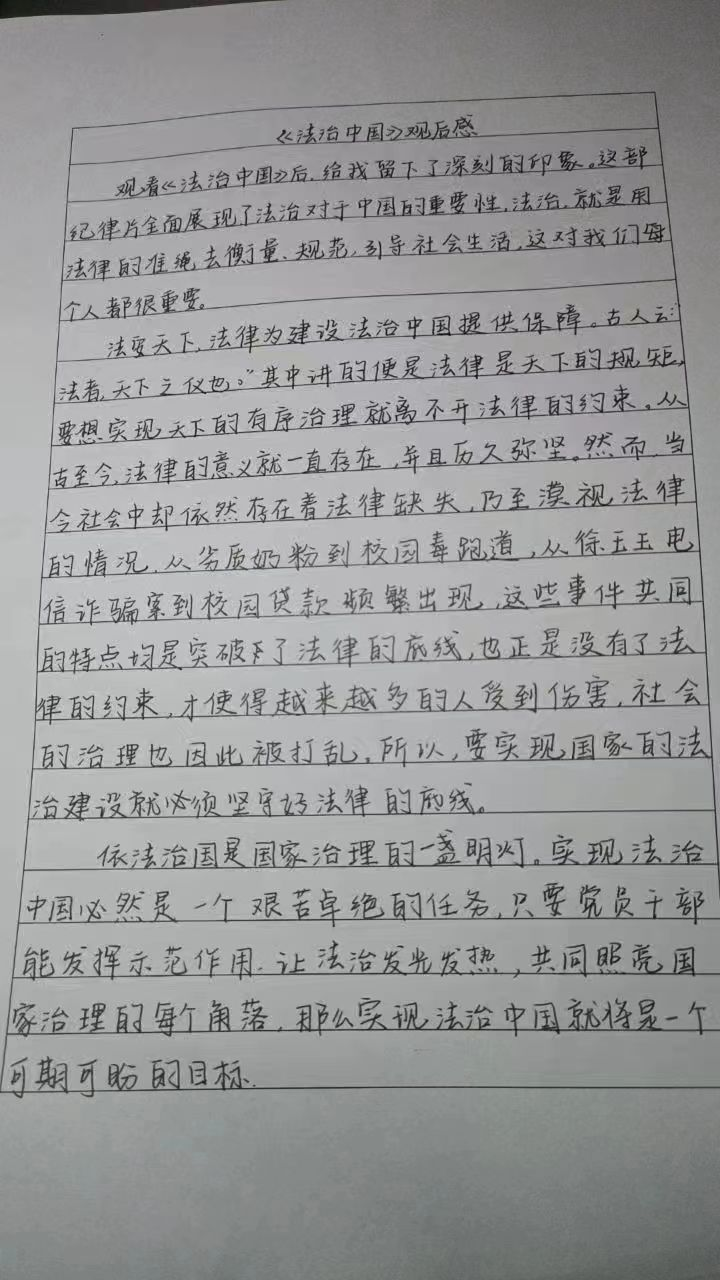 《法治中国》观后感
观看《法治中国》后,给我留下了深刻的印象。这部
纪律片全面展现了法治对于中国的重要性,法治,就是用
法律的准绳去衡量、规范,引导社会生活,这对我们每
个人都很重要。
法安天下,法律为建设法治中国提供保障。古人云:
法者,天下之仪也。”其中讲的便是法律是天下的规矩,
要想实现天下的有序治理就离不开法律的约束。从
古至今,法律的意义就一直存在,并且历久弥坚。然而,当
今社会中却依然存在着法律缺失,乃至漠视法律
的情况,从劣质奶粉到校园毒跑道,从徐玉玉电
信诈骗案到校园贷款频繁出现,这些事件共同
的特点均是突破了法律的底线,也正是没有了法
律的约束,才使得越来越多的人受到伤害,社会
的治理也因此被打乱。所以,要实现国家的法
治建设就必须坚守好法律的底线。
依法治国是国家治理的一盏明灯。实现法治
中国必然是一个艰苦卓绝的任务,只要党员干部
能发挥示范作用,让法治发光发热,共同照亮国
家治理的每个角落,那么实现法治中国就将是一个
可期可盼的目标.